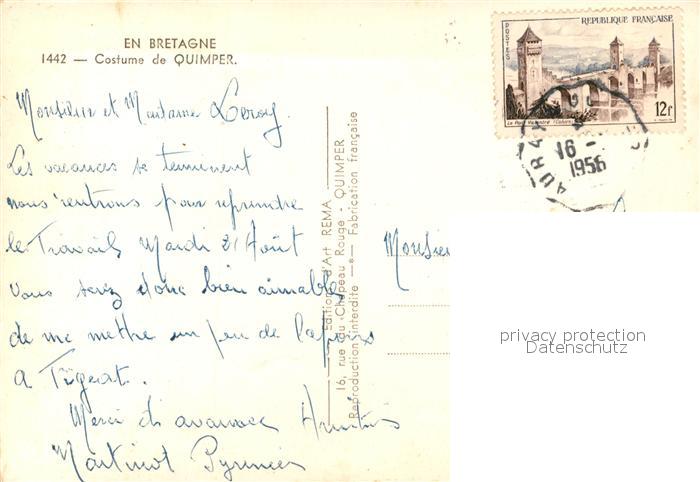 EN BRETAGNE
1442 — Costume de QUIMPER.
Monsieur et Madame Leroy.
Les vacances se terminent
nous rentrons pour reprendre
le Travail Mardi 21 Août
Vous serez donc bien aimable
de me mettre un peu de
a
Merci d'avance Amitiés
Martinot Pyrenées
Editions d'Art REMA - QUIMPER
16, rue du Chapeau Rouge - QUIMPER
Reproduction interdite —*— Fabrication française
REPUBLIQUE FRANÇAISE
POSTES
Le Pont Valentré (Cahors)
12f
AURAY
16 -
1956
Monsieu
privacy protection
Datenschutz